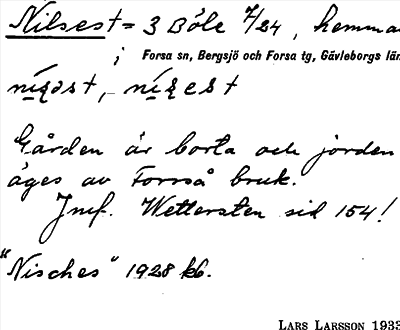 Nilsest = 3 Böle 7/24, hemma
i Forsa sn, Bergsjö och Forsa tg, Gävleborgs län
Gården är borta och jorden
äges av Forsså bruk.
Jmf. Wettersten sid 154!
"Nisches" 1928 kb.
LARS LARSSON 1933